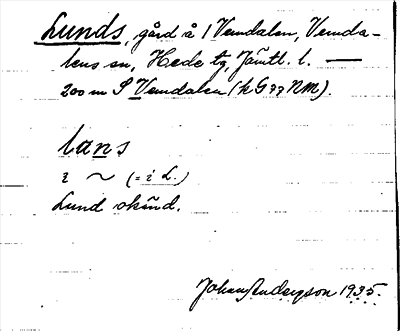 Lunds, gård å 1 Vemdalen, Vemda-
lens sn, Hede tg, Jämtl. l. —
200 m S Vemdalen (k G77 NM).
lans
i ~ (= i L.)
Lund okänd.
Johan Anderson 1935.